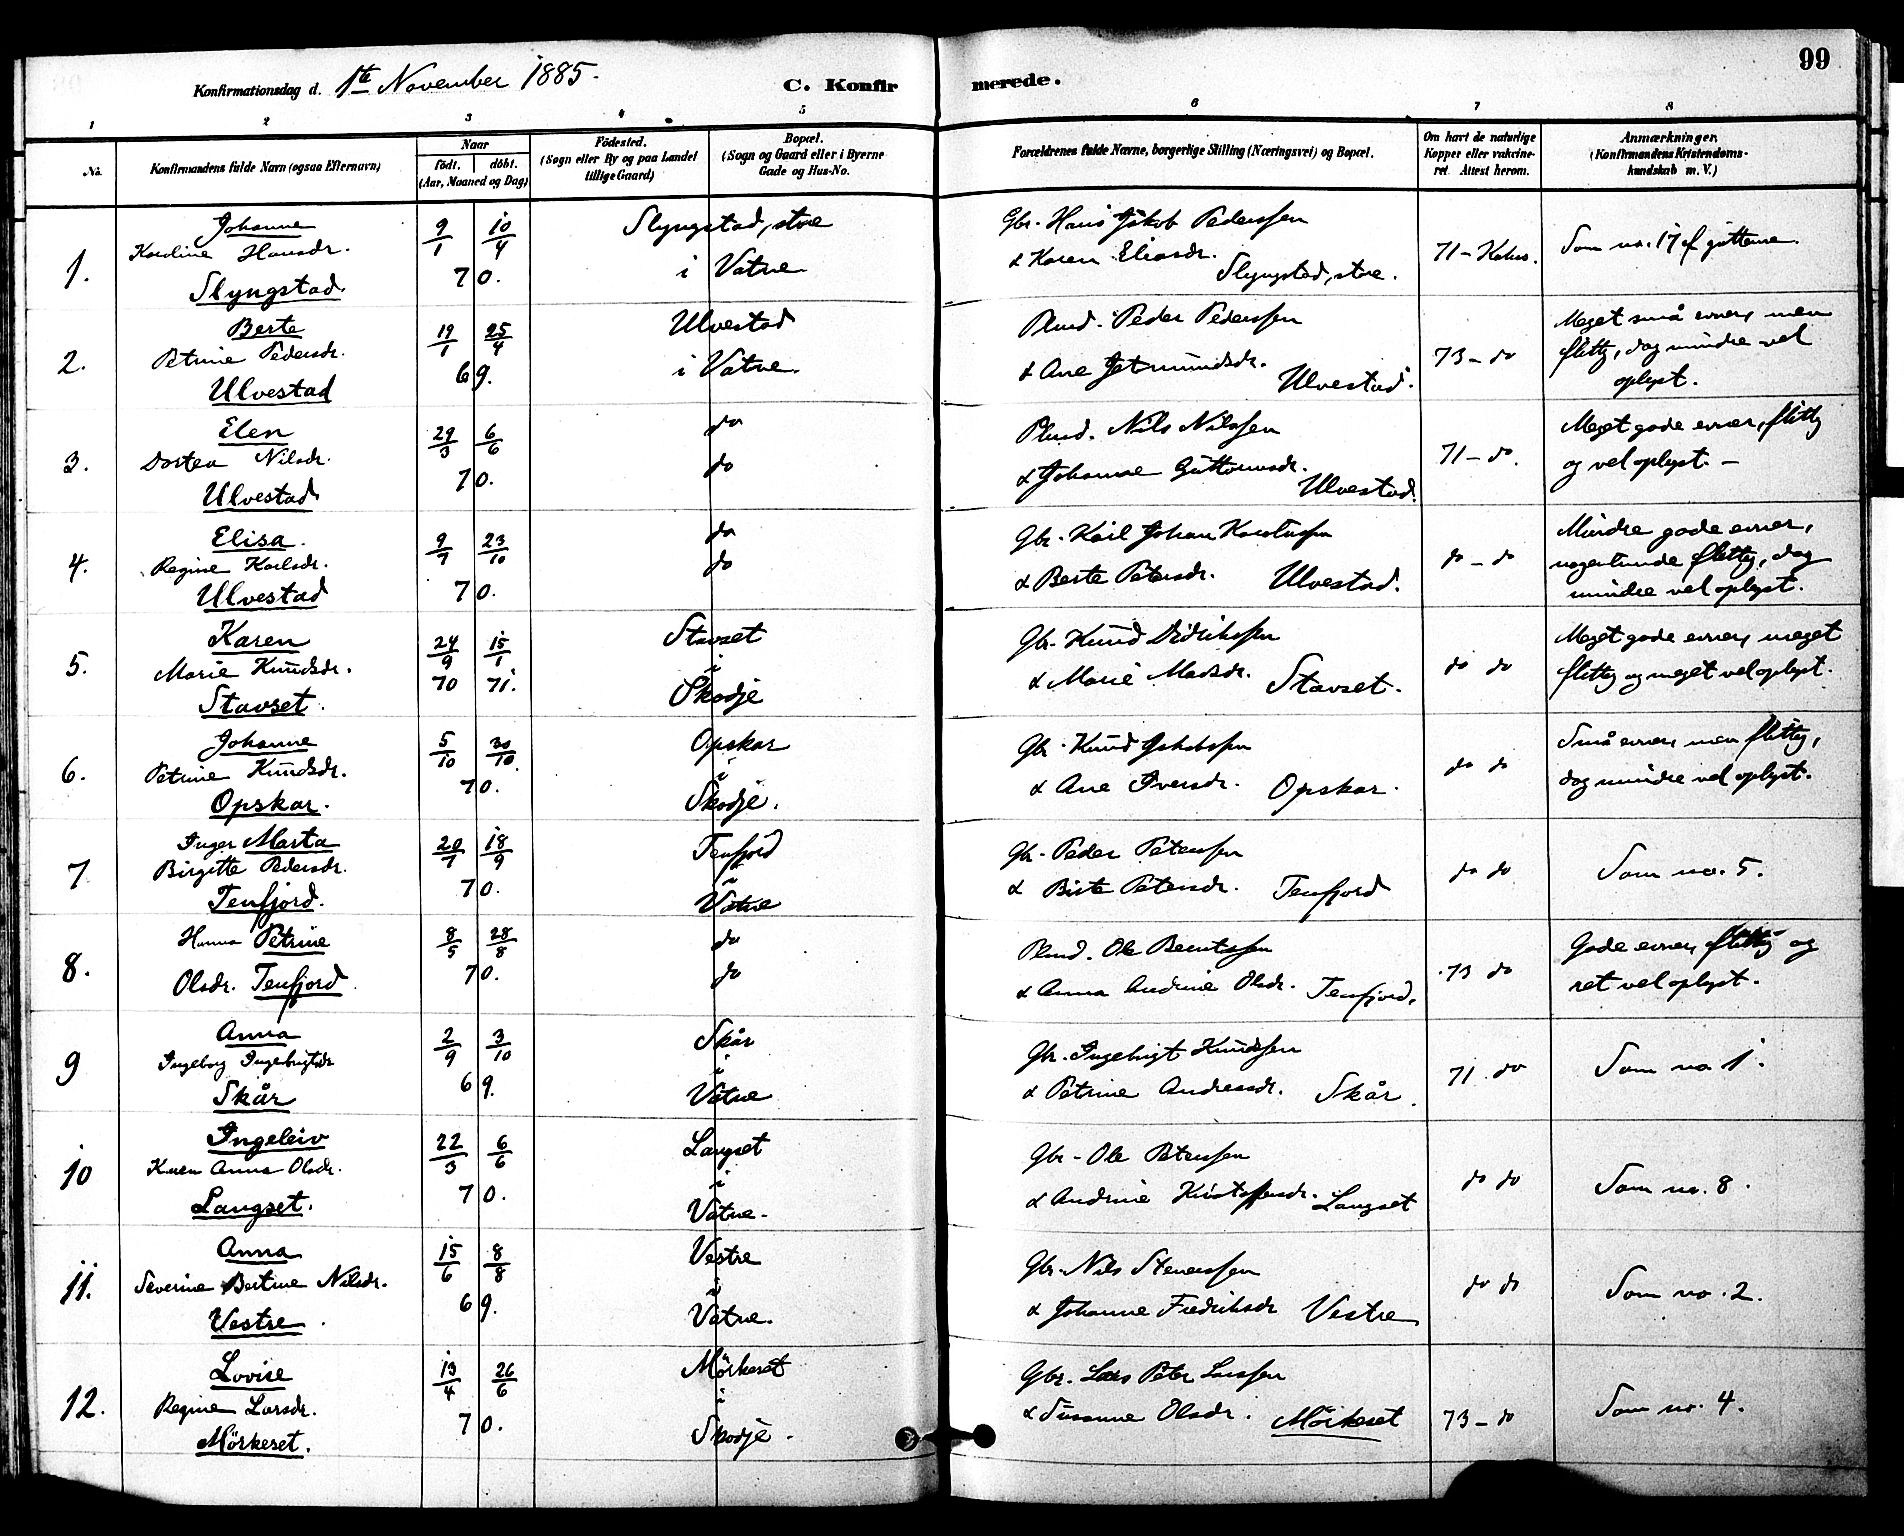 99
Konfirmationsdag d. 1ste November 1885.
C. Konfirmerede.
1 2 3 4 5 6 7 8
No.
Konfirmandens fulde Navn (ogsaa Efternavn)
Naar
födt. döbt.
(Aar, Maaned og Dag)
Födested.
(Sogn eller By og paa Landet tillige Gaard)
Bopæl.
(Sogn og Gaard eller i Byerne Gade og Hus-No.
Forældrenes fulde Navne, borgerlige Stilling (Næringsvei) og Bopæl.
Om havt de naturlige Kopper eller vakcineret. Attest herom.
Anmærkninger.
(Konfirmandens Kristendomskundskab m. V.)
1.
Johanne
Karoline Hansdr.
Slyngstad.
9/1 10/4
70.
Slyngstad, store
i Vatne
Gbr. Hans Jakob Pederssen
& Karen Eliasdr. Slyngstad, store.
71 -
Som no. 17 af guttene.
2.
Berte
Petrine Pedersdr.
Ulvestad
19/1 25/4
69.
Ulvestad
i Vatne.
Plmd. Peder Pederssen
& Ane Jetmundsdr. Ulvestad.
73 - do
Meget små evner, men
flittig, dog mindre vel
oplyst.
3.
Elen
Dortea Nilsdr.
Ulvestad
29/3 6/6
70.
do
do
Plmd. Nils Nilssen
& Johanne Guttormsdr. Ulvestad.
71 - do.
Meget gode evner, flittig
og vel oplyst. -
4.
Elisa.
Regine Karlsdr.
Ulvestad
9/7 23/10
70.
do
do
Gbr. Karl Johan
& Berte Petersdr. Ulvestad.
do - do
Mindre gode evner,
nogenlunde flittig, dog
mindre vel oplyst.
5.
Karen
Marie Knudsdr.
Stavset.
24/9 15/1
70 71.
Stavset
i
Skodje
Gbr. Knud Didrikssen
& Marie Madsdr. Stavset.
do do
Meget gode evner, meget
flittig og meget vel oplyst.
6.
Johanne
Petrine Knudsdr.
Opskar.
5/10 30/10
70.
Opskar
i
Skodje.
Gbr. Knud Jakobssen
& Ane Iversdr. Opskar.
do do
Små evner, men flittig,
dog mindre vel oplyst.
7
Inger Marta
Birgitte Pedersdr.
Tenfjord.
20/7 18/9
70.
Tenfjord
i
Vatne
Gbr. Peder Peterssen
& Berte Petersdr. Tenfjord
do do
Som no. 5.
8.
Hanna Petrine
Olsdr. Tenfjord
8/5 28/8
70.
do
do
Plmd. Ole Berntssen
& Anna Andrine Olsdr. Tenfjord.
73 do
Gode evner, flittig og
ret vel oplyst.
9
Anna
Ingeborg Ingebrigtsdr
Skår
2/9 3/10
69.
Skår
i
Vatne
Gbr. Ingebrigt Knudssen
& Petrine Andreasdr. Skår.
71 do
Som no 1.
10
Ingeleiv
Karen Anna Olsdr.
Langset.
22/3 6/6
70.
Langset
i
Vatne.
Gbr. Ole Peterssen
& Andrine Kristoffersdr. Langset
do do
Som no. 8.
11.
Anna
Severine Bertine Nilsdr.
Vestre.
15/6 8/8
69.
Vestre
i
Vatne.
Gbr. Nils Stenerssen
& Johanne Fredriksdr Vestre
do do
Som no. 2.
12.
Lovise
Regine Larsdr.
Mörkeset.
13/4 26/6
70.
Mörkeset
i
Skodje.
Gbr. Lars Peter Larssen
& Susanne Olsdr. Mörkeset
73 - do
Som no. 4.